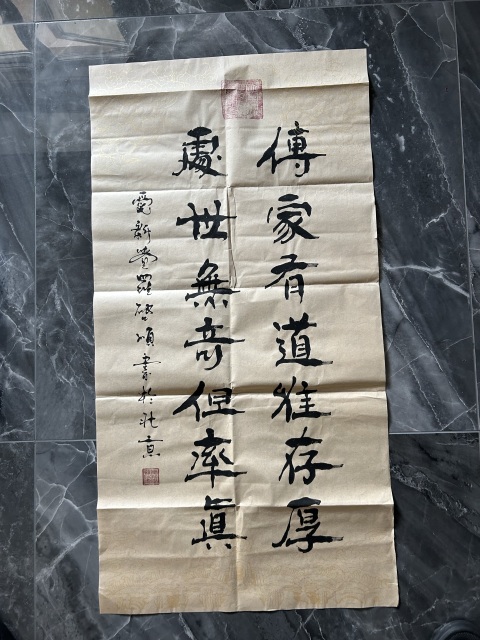 傳家有道唯存厚
處世無奇但率真
愛新覺羅啓順書於北京